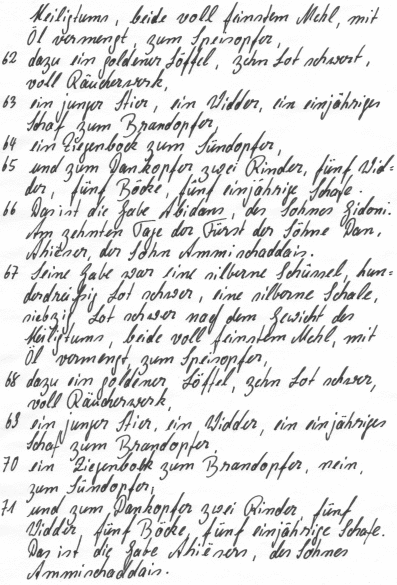 Heiligtums, beide voll feinstem Mehl, mit
Öl vermengt, zum Speisopfer,
62 dazu ein goldener Löffel, zehn Lot schwert,
voll Räucherwerk,
63 ein junger Stier, ein Widder, ein einjähriges
Schaf zum Brandopfer,
64 ein Ziegenbock zum Sündopfer,
65 und zum Dankopfer zwei Rinder, fünf Wid=
der, fünf Böcke, fünf einjährige Schafe.
66 Das ist die Gabe Abidans, des Sohnes Gidoni.
Am zehnten Tage der Fürst der Söhne Dan,
Ahiëser, der Sohn Ammischaddais.
67 Seine Gabe war eine silberne Schüssel, hun=
dertdreißig Lot schwer, eine silberne Schale,
siebzig Lot schwer nach dem Gewicht des
Heiligtums, beide voll feinstem Mehl, mit
Öl vermengt, zum Speisopfer,
68 dazu ein goldener Löffel, zehn Lot schwer,
voll Räucherwerk,
69 ein junger Stier, ein Widder, ein einjähriges
Schaf zum Brandopfer,
70 ein Ziegenbock zum Brandopfer, nein,
zum Sündopfer;
71 und zum Dankopfer zwei Rinder, fünf
Widder, fünf Böcke, fünf einjährige Schafe.
Das ist die Gabe Ahiësers, des Sohnes
Ammischaddais.